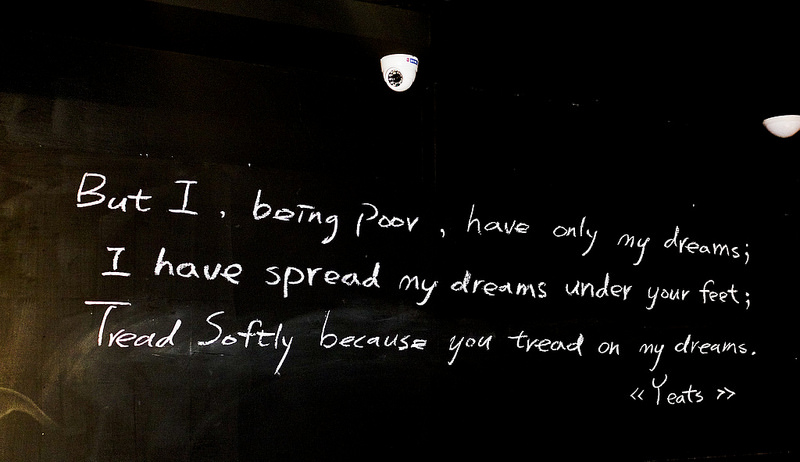 But I, being Poor, have only my dreams;
I have spread my dreams under your feet;
Tread Softly because you tread on my dreams.
«Yeats»